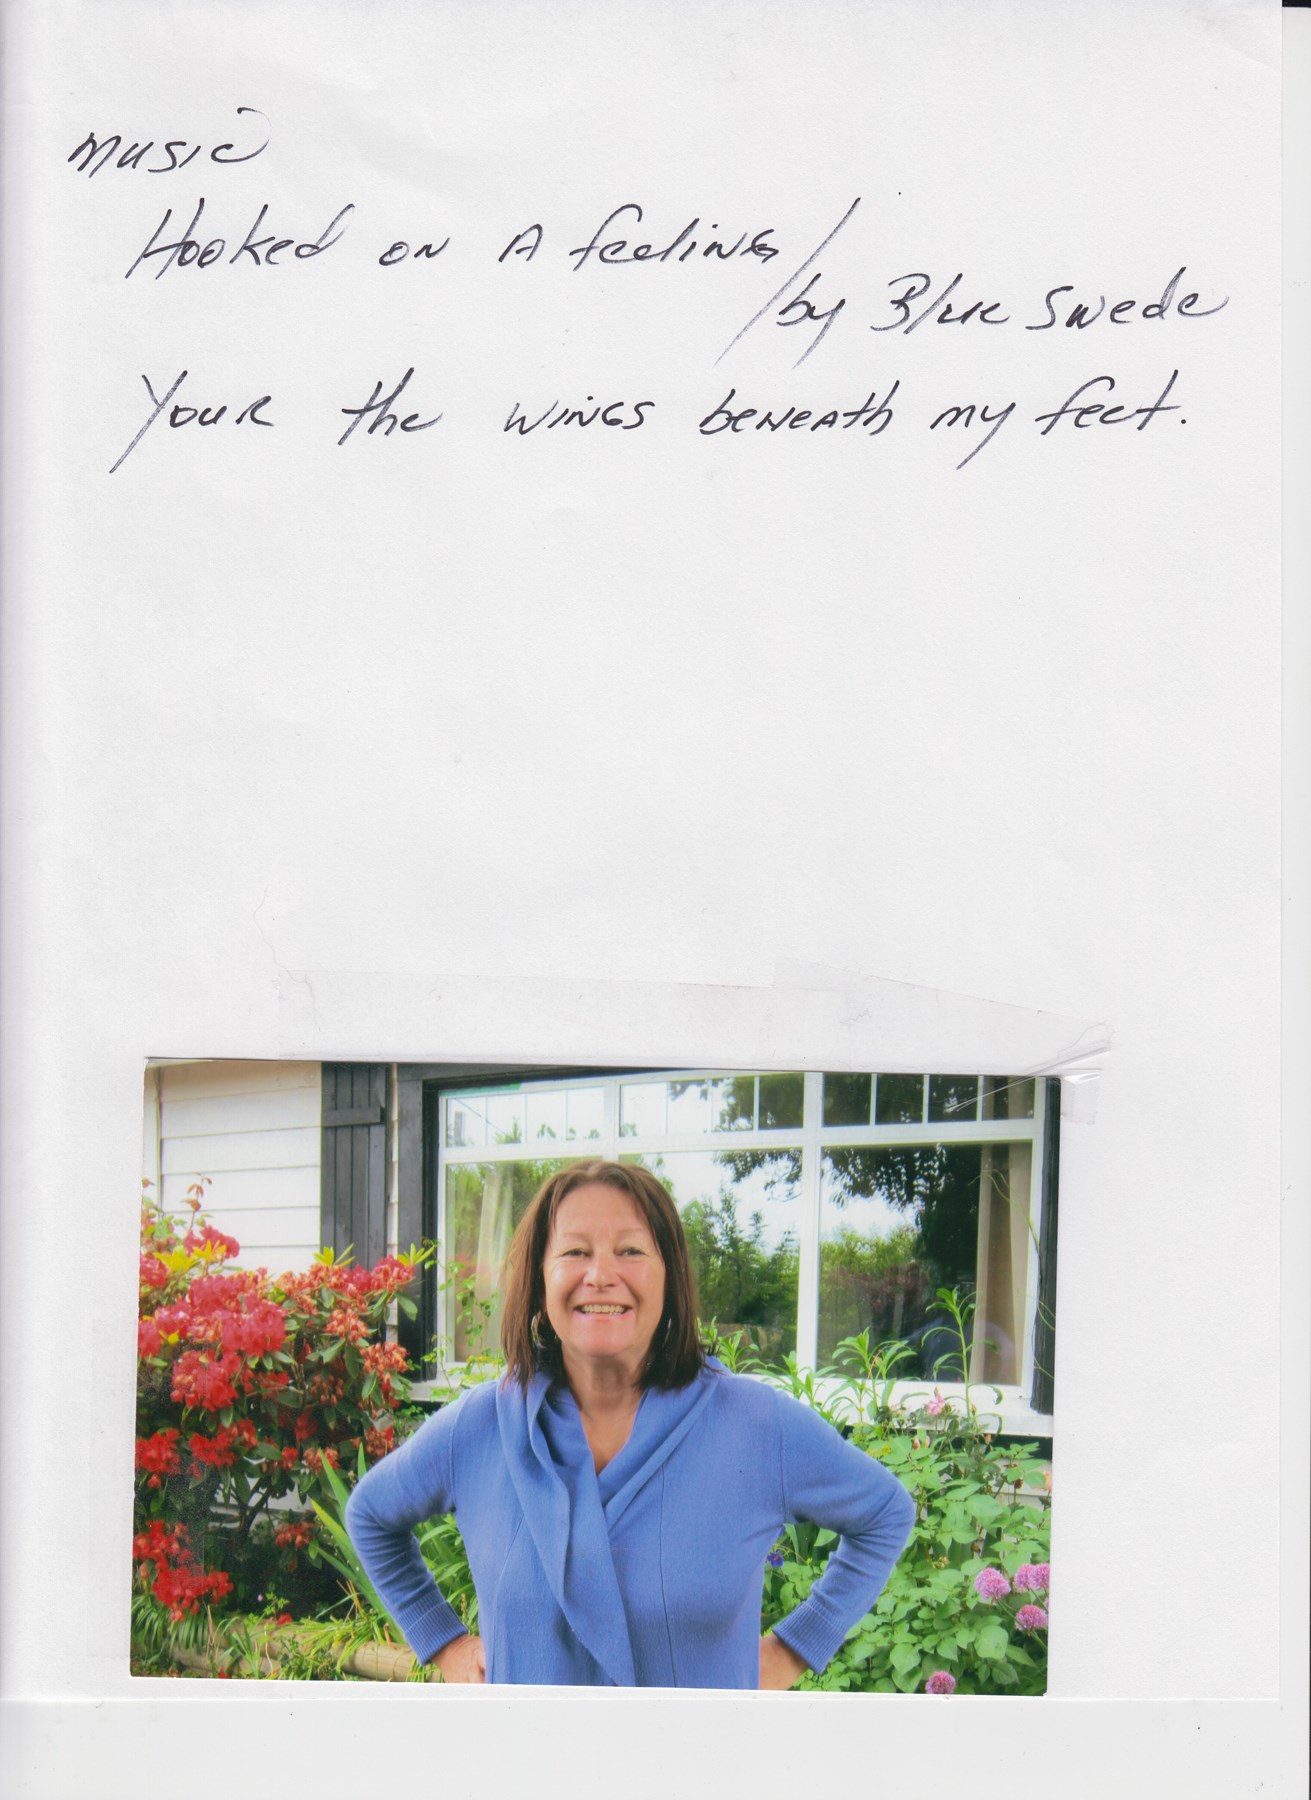 Music
Hooked on A feeling/
by Blue Swede
Your the wings beneath my feet.